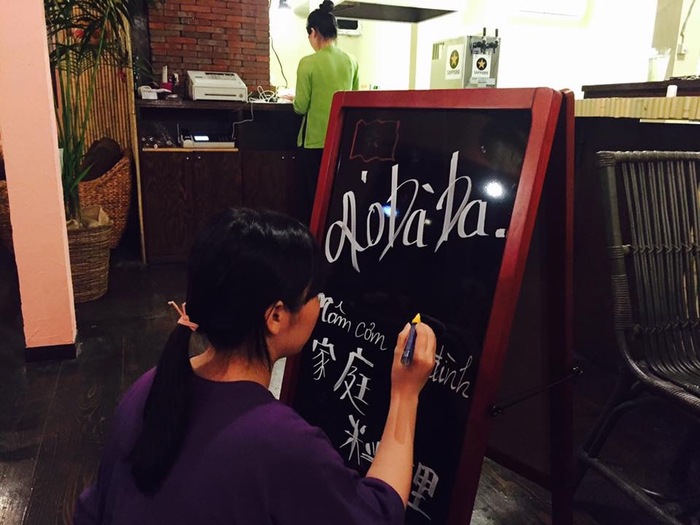 Áo bà ba.
Mâm cơm đình
家庭
料理
SAPPORO
SAPPORO